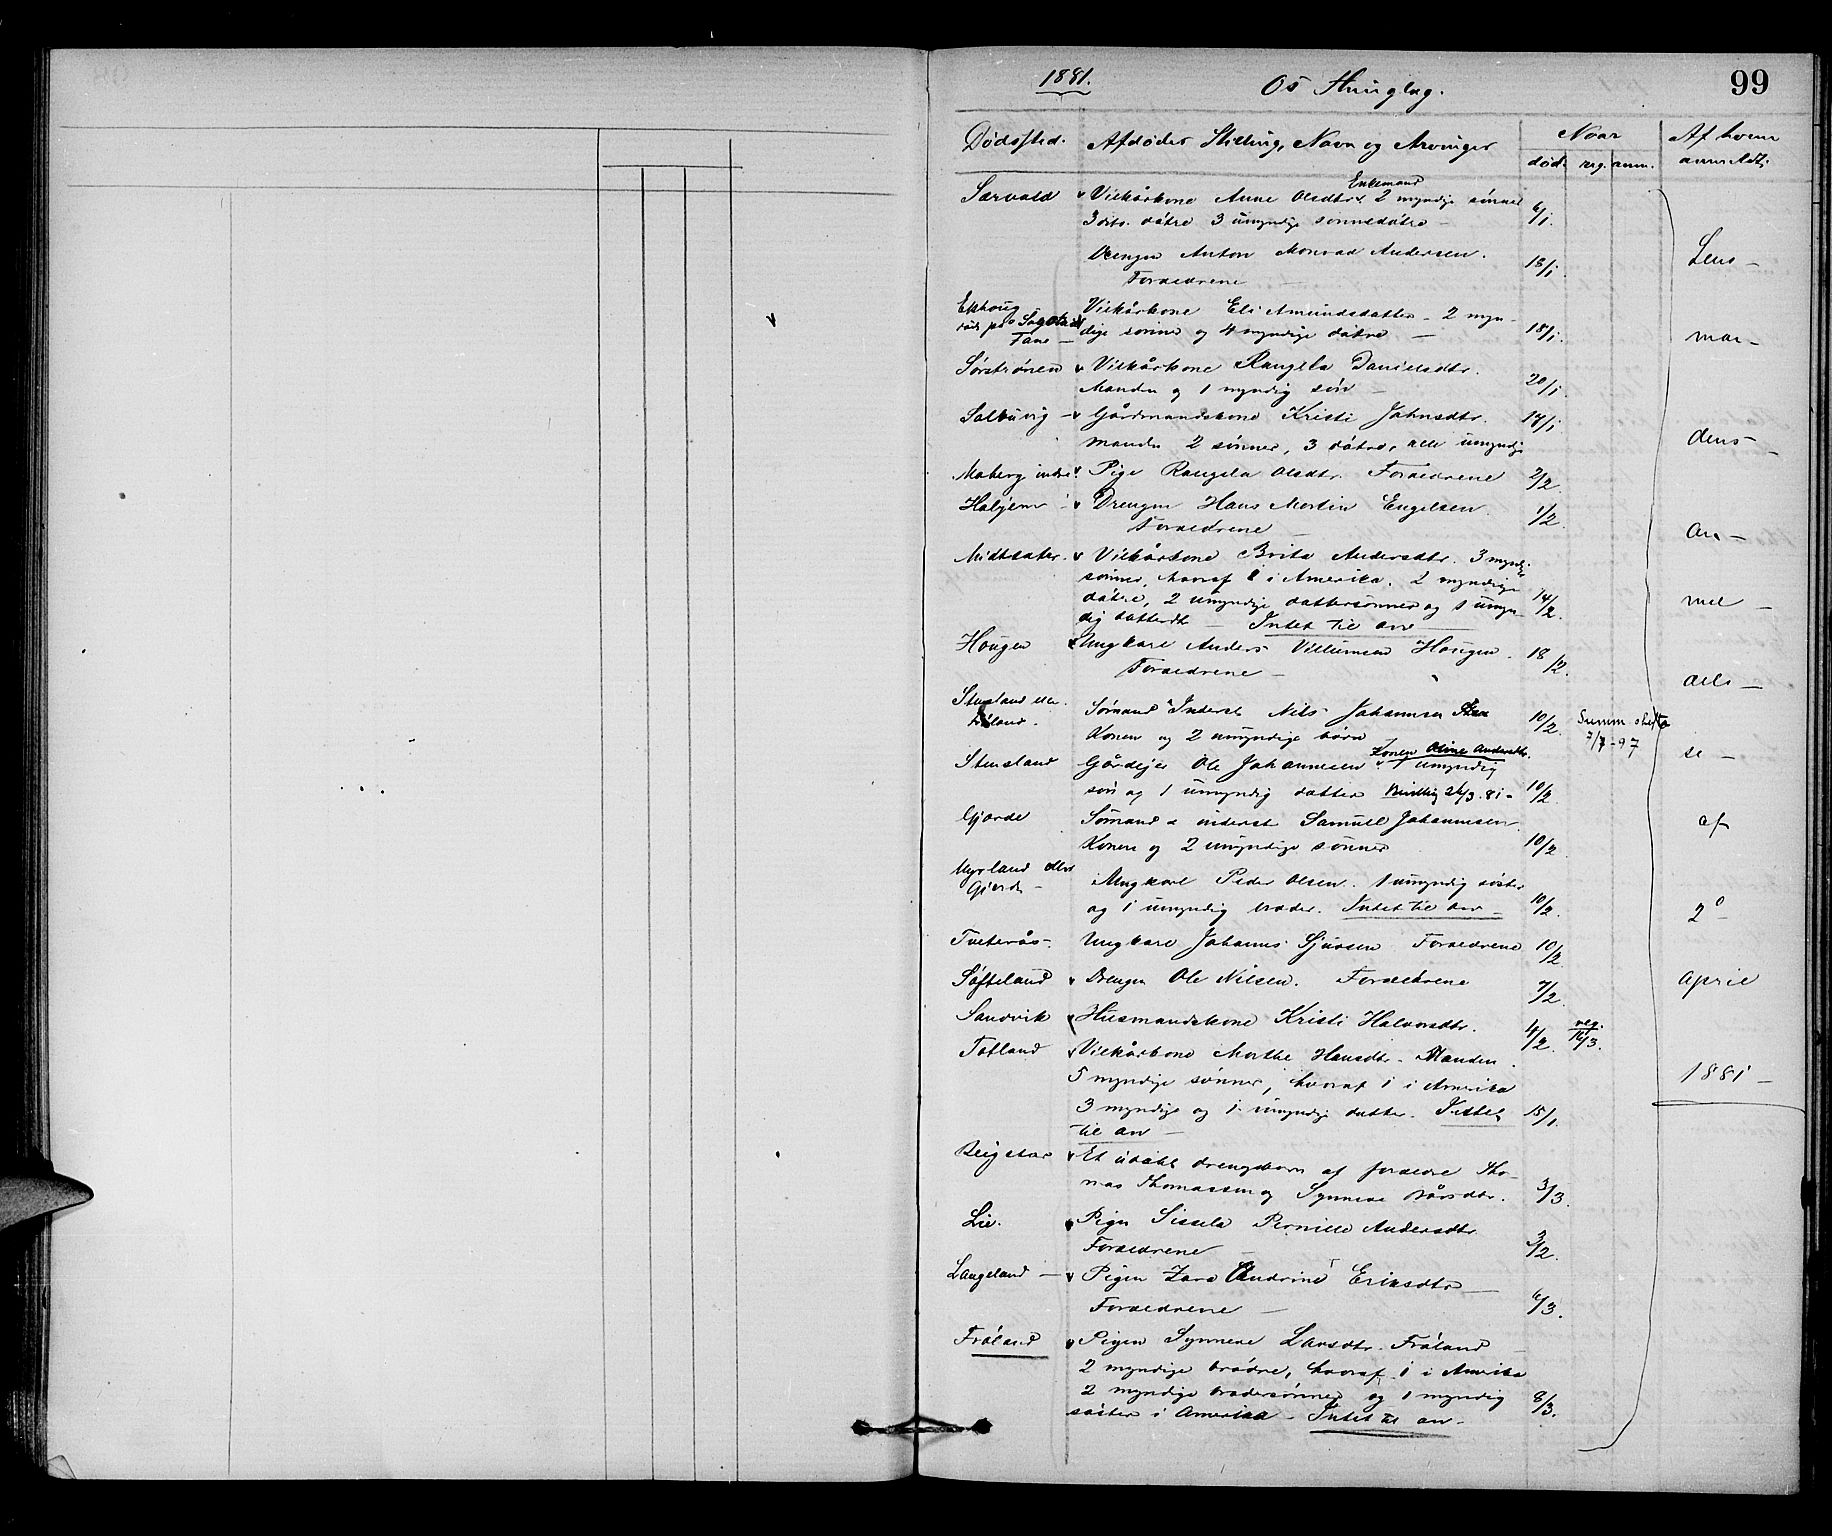 1881. Os Thinglag. 99
Dødssted. Afdødes Stilling, Navn og Arvinger Naar Af hvem
død. reg. anm. anmeldt.
Særvold Vilkårkone Anne Olsdtr. Enkemand 2 myndige sønner 6/1
3 dito. døtre 3 umyndige sønnedøtre —
Drengen Anton Monrad Andersen. 13/1. Lens-
Forældrene —
Ekhoug Vilkårkone Eli Amundsdatter — 2 myn-
død på Søfteland Fane — dige sønner og 4 myndige døtre — 18/1. man-
Sørstrønen Vilkårkone Rangela Danielsdtr.
Manden og 1 myndig søn — 20/1
Solbuvig — Gårdmandskone Kristi Johnsdtr. 17/1
manden 2 sønner, 3 døtre, alle umyndige dens-
Moberg indre Pige Rangela Olsdtr. Forældrene 2/2.
Haljem Drengen Hans Martin Engelsen. 1/2.
Forældrene — an-
Midtsæter. Vilkårkone Brita Andersdtr. 3 myndige
sønner, hvoraf 2 i Amerika. 2 myndige
døtre, 2 umyndige dattersønner og 1 umyn- 14/2. mel-
dig datterdt — Intet til arv —
Hougen Ungkarl Anders Villumsen Hougen. 18/2.
Forældrene — dels-
Stensland eller Sømand Inderst Nils Johannsen 10/2. Summ. skifte
Frøland. Konen og 2 umyndige børn 7/7-97
Stensland Gårdejer Ole Johannesen Konen Oline Andersdtr. 1 umyndig se-
søn og 1 umyndig datter 26/3.81- 10/2.
Gjørde Sømand & inderst Samuel Johannesen. af
Konen og 2 umyndige sønner 10/2.
Myrland eller Ungkarl Peder Olsen. 1 umyndig søster
Gjerde — og 1 umyndig broder. Intet til arv — 10/2. 2º
Tveterås. Ungkarl Johannes Sjursen Forældrene 10/2.
Søfteland Drengen Ole Nilsen. Forældrene 7/2. april
Sandvik Husmandskone Kristi Halvorsdtr. 4/2. reg. 16/3.
Tøfland Vilkårkone Marthe Hansdtr. Manden.
5 myndige sønner, hvoraf 1 i Amerika 1881 —
3 myndige og 1 umyndig datter. Intet 15/1.
til arv —
Bøigstar Et udøbt drengebarn af forældre Tho-
mas Thomassen og Synneve Bårsdtr. 3/3.
Lie. Pigen Sissela Pernille Andersdtr.
Forældrene 3/2.
Langeland — Pigen Zara Andrine Eriksdtr —
Forældrene — 6/3.
Frøland Pigen Synneve Larsdtr. Frøland
2 myndige brødre, hvoraf 1 i Amerika
2 myndige brodersønner og 1 myndig
søster i Amerika — Intet til arv — 8/3.